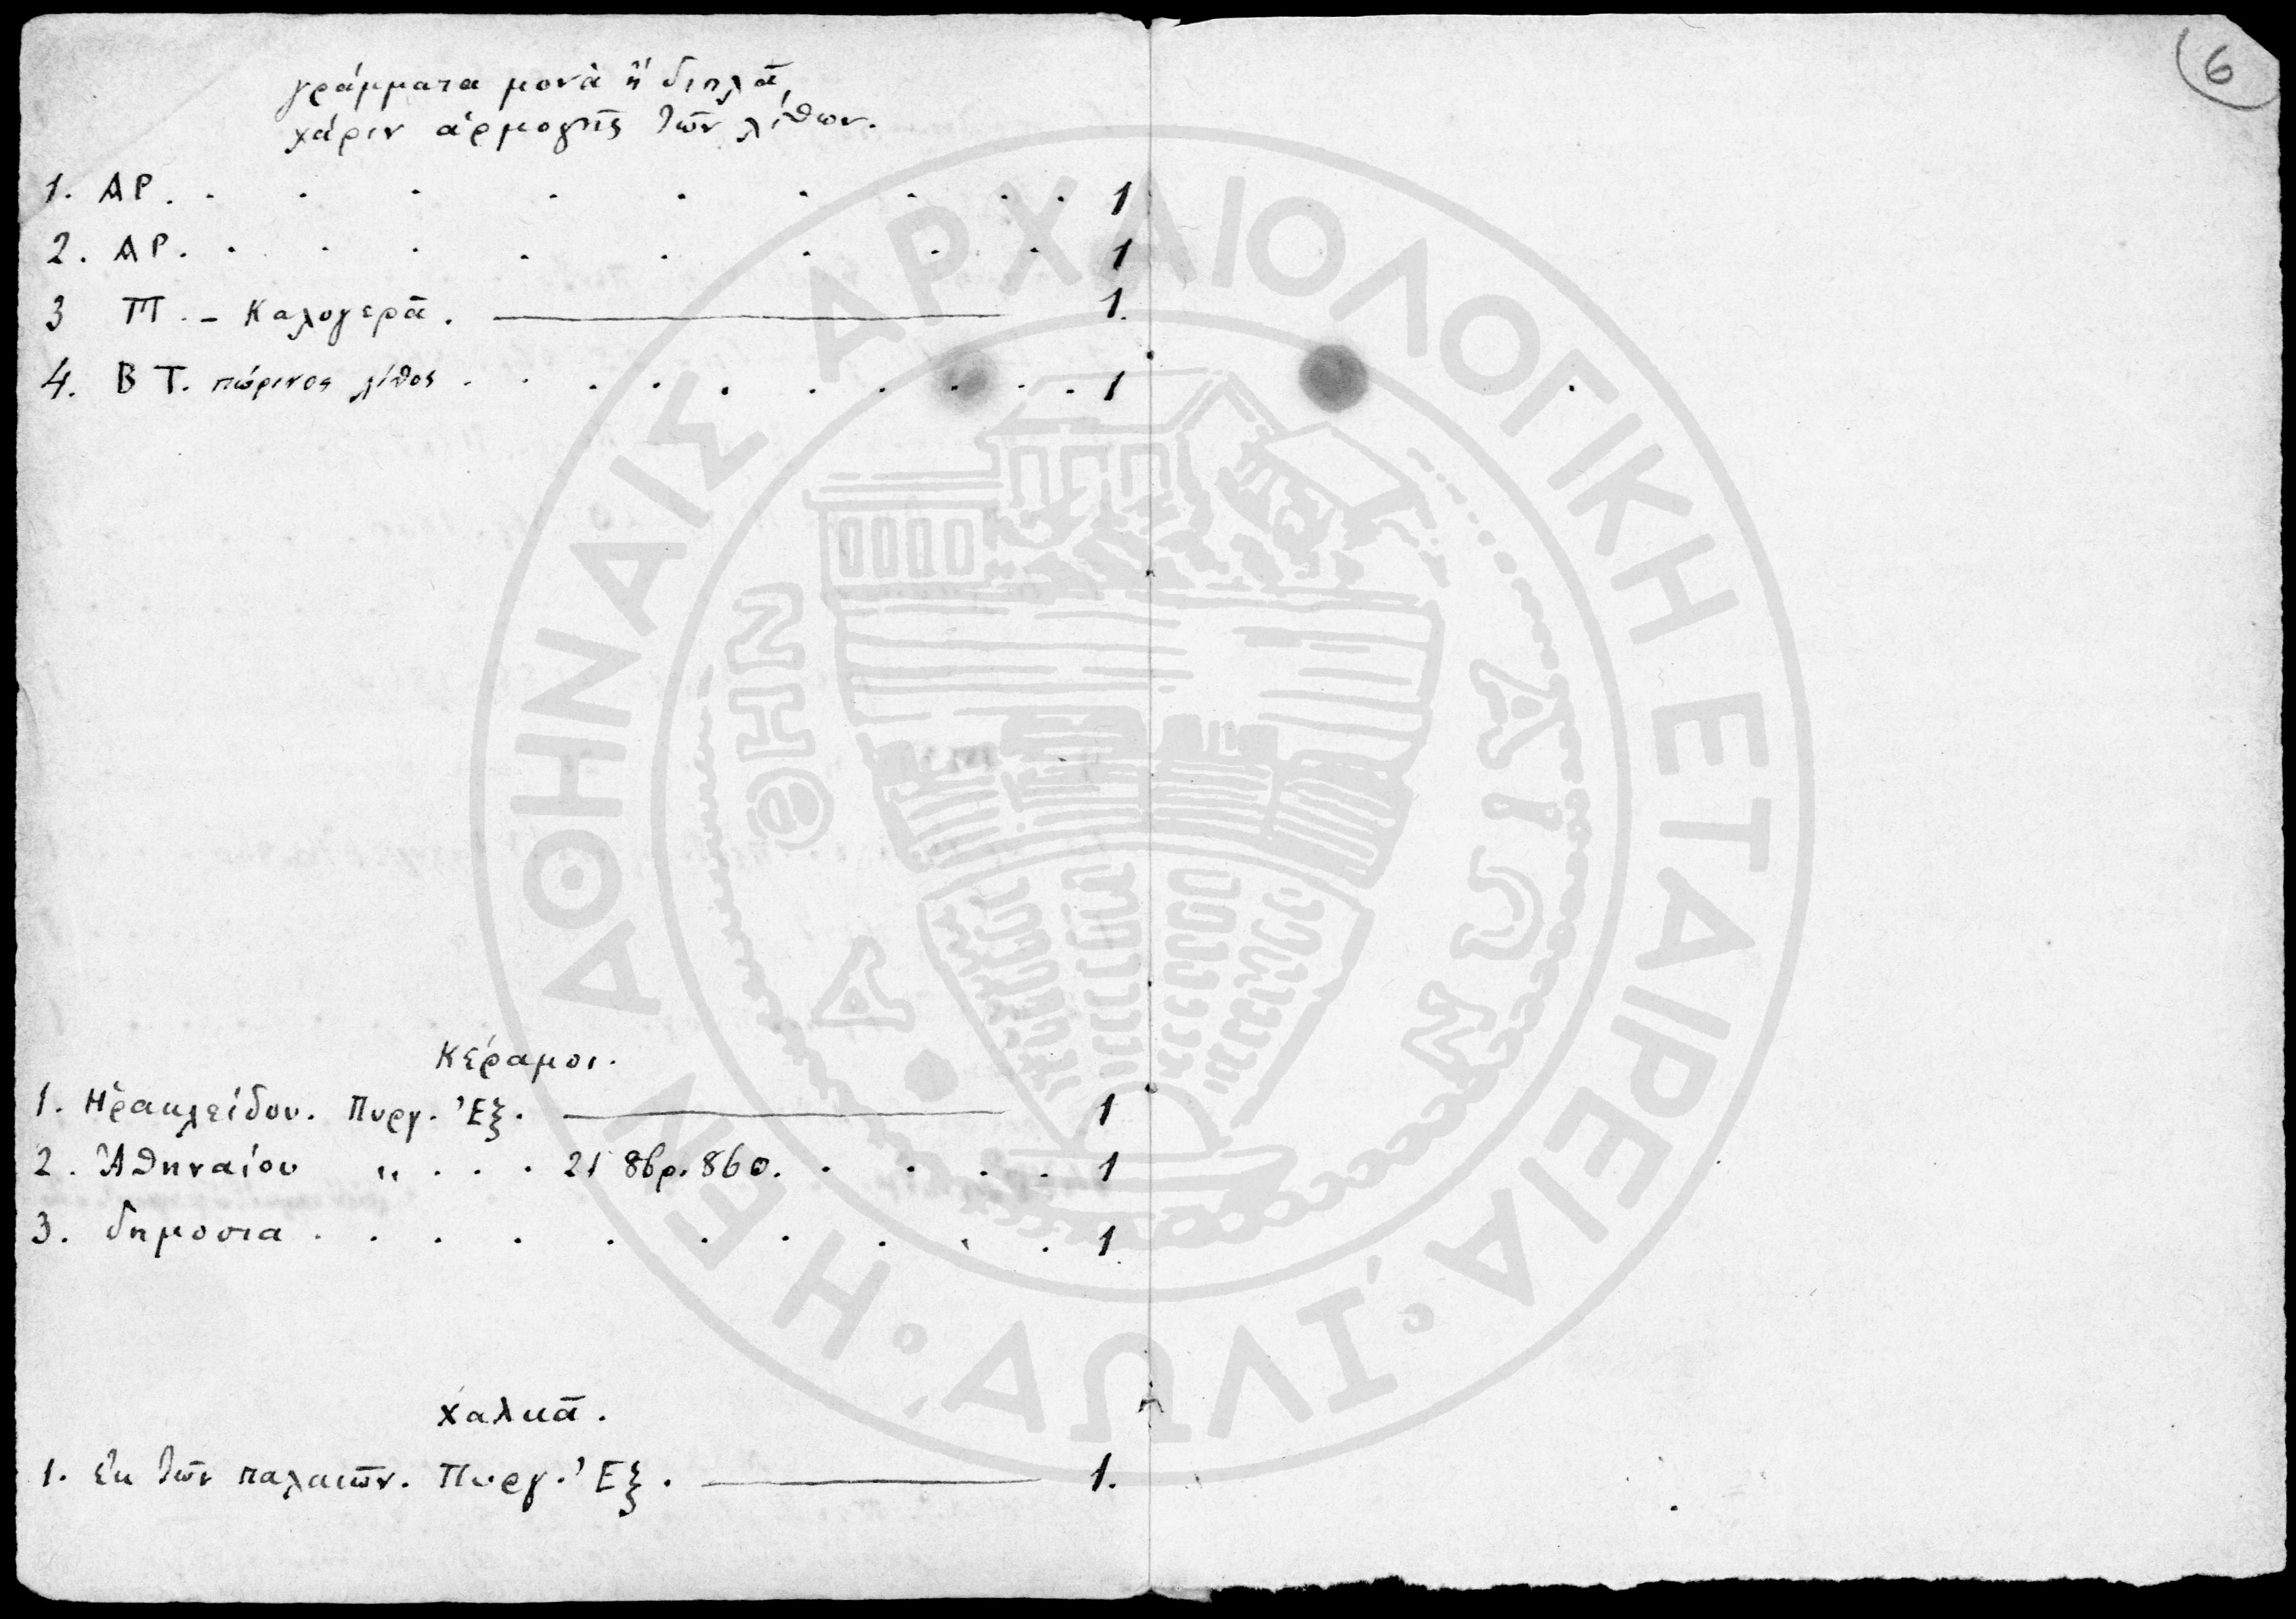 γράμματα μονὰ ἢ διπλᾶ,
χάριν ἁρμογῆς τῶν λίθων.
1. ΑΡ. . . . . . . . . 1
2. ΑΡ. . . . . . . . . 1
3 ΠΤ. – Καλογερᾶ. ——— 1.
4. Β Τ. πώρινος λίθος . . . . . . . . . 1
Κέραμοι.
1. Ἡρακλείδου. Πυργ. Ἐξ. ——— 1
2. Ἀθηναίου „ . . . 21 8βρ. 860. . . . . 1
3. δημοσια . . . . . . . . . 1
Χαλκᾶ.
1. Ἐκ τῶν παλαιῶν. Πυργ. Ἐξ. ——— 1.
6
Η ΕΝ ΑΘΗΝΑΙΣ ΑΡΧΑΙΟΛΟΓΙΚΗ ΕΤΑΙΡΕΙΑ